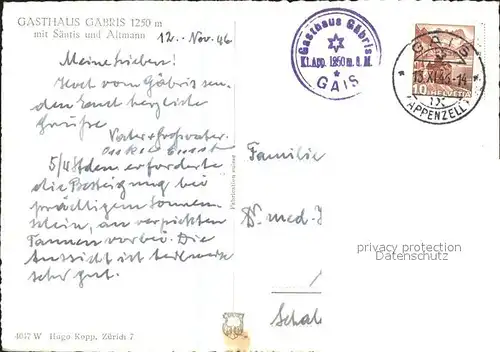 GASTHAUS GÄBRIS 1250 m
mit Säntis und Altmann
12. Nov. 46
Meine Lieben!
Hoch vom Gäbris sen-
den Euch herzliche
Grüsse
Vater & Grossvater.
5/4 Stden erforderte
die Besteigung bei
prächtigem Sonnen-
schein, an
Tannen vorbei. Die
Aussicht ist teilweise
sehr gut.
4037 W Hugo Kopp, Zürich 7
Gasthaus Gäbris
Kt. App. 1250 m. ü. M.
GAIS
GAIS
13.XI.46-14
APPENZELL
10 HELVETIA
Familie
Dr. med.
privacy protection
Datenschutz
Schal